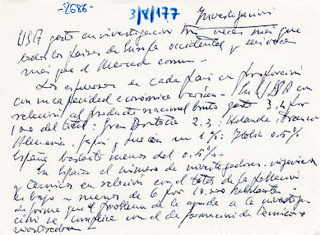 -2686-
3/V/177
Investigación
USA gasta en investigación tres veces más que
todos los países de Europa occidental y seis veces
más que el Mercado común.
Los esfuerzos en cada país en proporción
con su capacidad económica varían. En USA en
relación al producto nacional bruto gasta 3,4 por
100 del total: Gran Bretaña 2,3; Holanda, Francia
Alemania, Japón, Suecia un 1%: Italia 0,5%
España bastante menos del 0,5%.
En España el número de investigadores, ingenieros
y técnicos en relación con el total de la población
es bajo menos de 6 por 10.000 habitantes.
que el problema de la ayuda a la investiga-
ción se complica con el de formación de técnicos e
investigadores